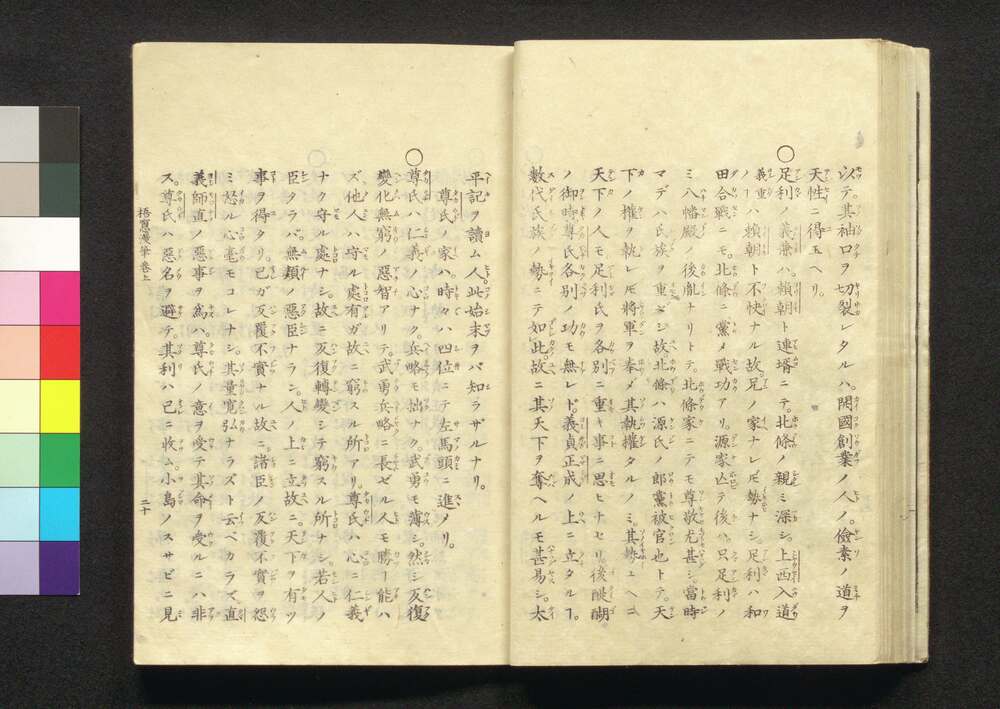 以テ。其袖口ヲ切裂レタルハ。開國創業ノ人ノ。儉素ノ道ヲ
天性ニ得玉ヘリ。
○足利ノ義兼ハ。賴朝ト連壻ニテ。北條ノ親ミ深シ。上西入道
義重ノヿハ賴朝ト不快ナル故。足ノ家ナレ𪜈勢ナシ。足利ハ和
田合戰ニモ。北條ニ黨メ戰功アリ。源家亡テ後ハ。只足利ノ
ミ八幡殿ノ後胤ナリトテ。北條家ニテモ尊敬尤甚シ。當時
マデハ氏族ヲ重ンジ。故北條ハ源氏ノ郎黨被官也トテ。天
下ノ權ヲ執レ𪜈將軍ヲ奉メ其執權タルノミ。其故ユヘニ
天下ノ人モ足利氏ヲ各別ニ重キ事ニ思ヒナセリ後醍醐
ノ御時尊氏各別ノ功モ無レド。義貞正成ノ上ニ立タルヿ。
數代氏族ノ勢ニテ如此。故ニ其天下ヲ奪ヘルモ甚易シ。太
平記ヲ讀ム人。此始末ヲバ知ラザルナリ。
尊氏ノ家ハ。時々ハ四位ニテ左馬頭ニ進メリ。
○尊氏ハ仁義ノ心ナク。兵略モ拙ナク。武勇モ薄シ。然シ反復
變化無窮ノ惡智アリテ。武勇兵略ニ長ゼル人モ勝ヿ能ハ
ズ。他人ハ守ル處有ガ故ニ窮スル所アリ。尊氏ハ心ニ仁義
ナク守ル處ナシ。故ニ反復轉變シテ窮スル所ナシ。若人ノ
臣タラバ。無賴ノ惡臣ナラン。人ノ上ニ立故ニ。天下ヲ有ツ
事ヲ得タリ。已ガ反覆不實ナル故ニ。諸臣ノ反覆不實ヲ怨
ミ怒ル心毫モコレナシ。其量寬弘ナラズト云ベカラズ。直
義師直ノ惡事ヲ爲ハ。尊氏ノ意ヲ受テ其命ヲ受ルニハ非
ス。尊氏ハ惡名ヲ避テ。其利ハ已ニ收ム。小島ノスサビニ見
梧窻漫筆 卷上
二十